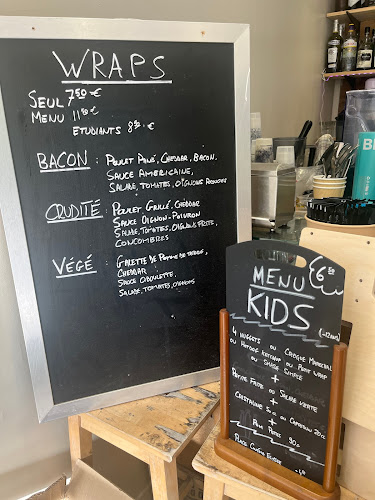 WRAPS
SEUL 7€50
MENU 11€50
ETUDIANTS 8,50 €
BACON : POULET PANÉ, CHEDDAR, BACON.
SAUCE AMERICAINE,
SALADE, TOMATES, OIGNONS ROUGES
CRUDITÉ : POULET GRILLÉ, CHEDDAR
SAUCE OIGNON-POIVRON
SALADE, TOMATES, OIGNONS FRITS,
CONCOMBRES
VÉGÉ : GALETTE DE POMME DE TERRE,
CHEDDAR
SAUCE CIBOULETTE,
SALADE, TOMATES, OIGNONS
MENU
KIDS
(-12ANS)
4 NUGGETS OU CROQUE MONSIEUR
OU HOTDOG KETCHUP OU PETIT WRAP
OU SIMPLE
+
PETITE FRITE OU SALADE VERTE
+
CRISTALINE 50CL OU CAPRISUN 20CL
+